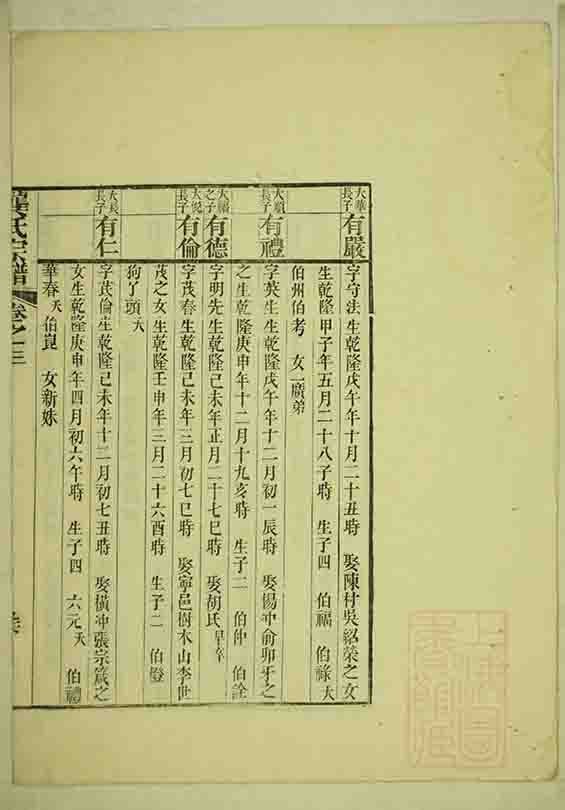 大華長子 有嚴 字守法生乾隆戊午年十月二十丑時 娶陳村吳紹榮之女
生乾隆甲子年五月二十八子時 生子四 伯福 伯祿夭
伯州伯考 女一廣弟
長子 有禮 字英生生乾隆戊午年十二月初一辰時 娶楊冲俞卯牙之
之生乾隆庚申年十二月十九亥時 生子二 伯仲 伯詮
之子 有德 字明先生乾隆己未年正月二十七巳時 娶胡氏早卒
長子 有倫 字茂春生乾隆己未年三月初七巳時 娶寧邑樹木山李世
茂之女生乾隆壬申年三月二十六酉時 生子二 伯燈
狗丫頭夭
長子 有仁 字茂倫生乾隆己未年十二月初七丑時 娶橫冲張宗箴之
女生乾隆庚申年四月初六午時 生子四 六元夭 伯禮
華春夭伯崑 女新姝
氏宗譜 卷之十三